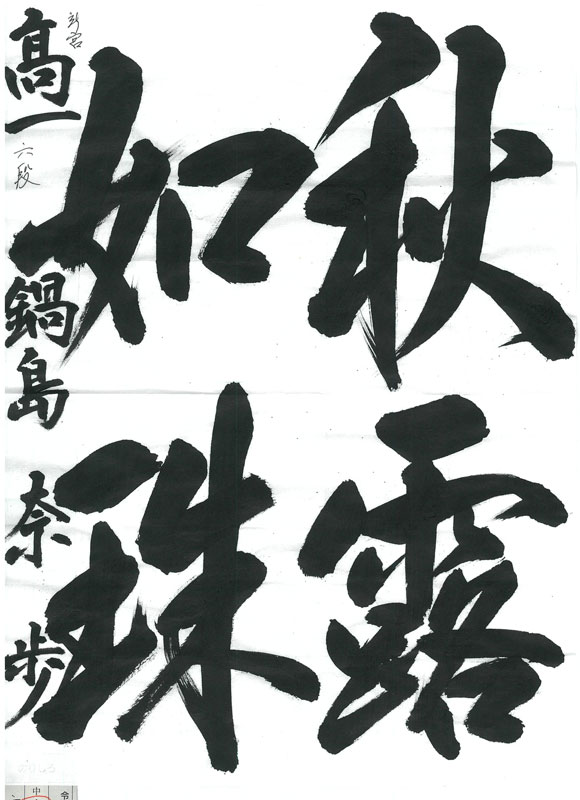 秋露
如珠
新宮
高一 六段 鍋島 奈歩